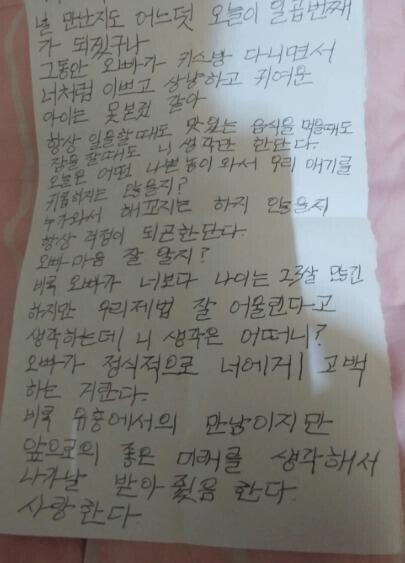 널 만난지도 어느덧 오늘이 일곱번째
가 되겠구나
그동안 오빠가 키스방 다니면서
너처럼 이쁘고 상냥하고 귀여운
아이는 못본것 같아
항상 일을할때도 맛있는 음식을 먹을때도
잠을 잘때도 니 생각만 한단다.
오늘은 어떤 나쁜놈이와서 우리 애기를
귀롭히지는 않을지?
누가와서 해꼬지는 하지 않을지
항상 걱정이 되곤한단다.
오빠마음 잘 알지?
비록 오빠가 너보다 나이는 23살 많긴
하지만 우리제법 잘 어울린다고
생각하는데 니 생각은 어떠니?
오빠가 정식적으로 너에게 고백
하는 거란다.
비록 유흥에서의 만남이지만
앞으로의 좋은 미래를 생각해서
나가날 받아줬음 한다.
사랑한다